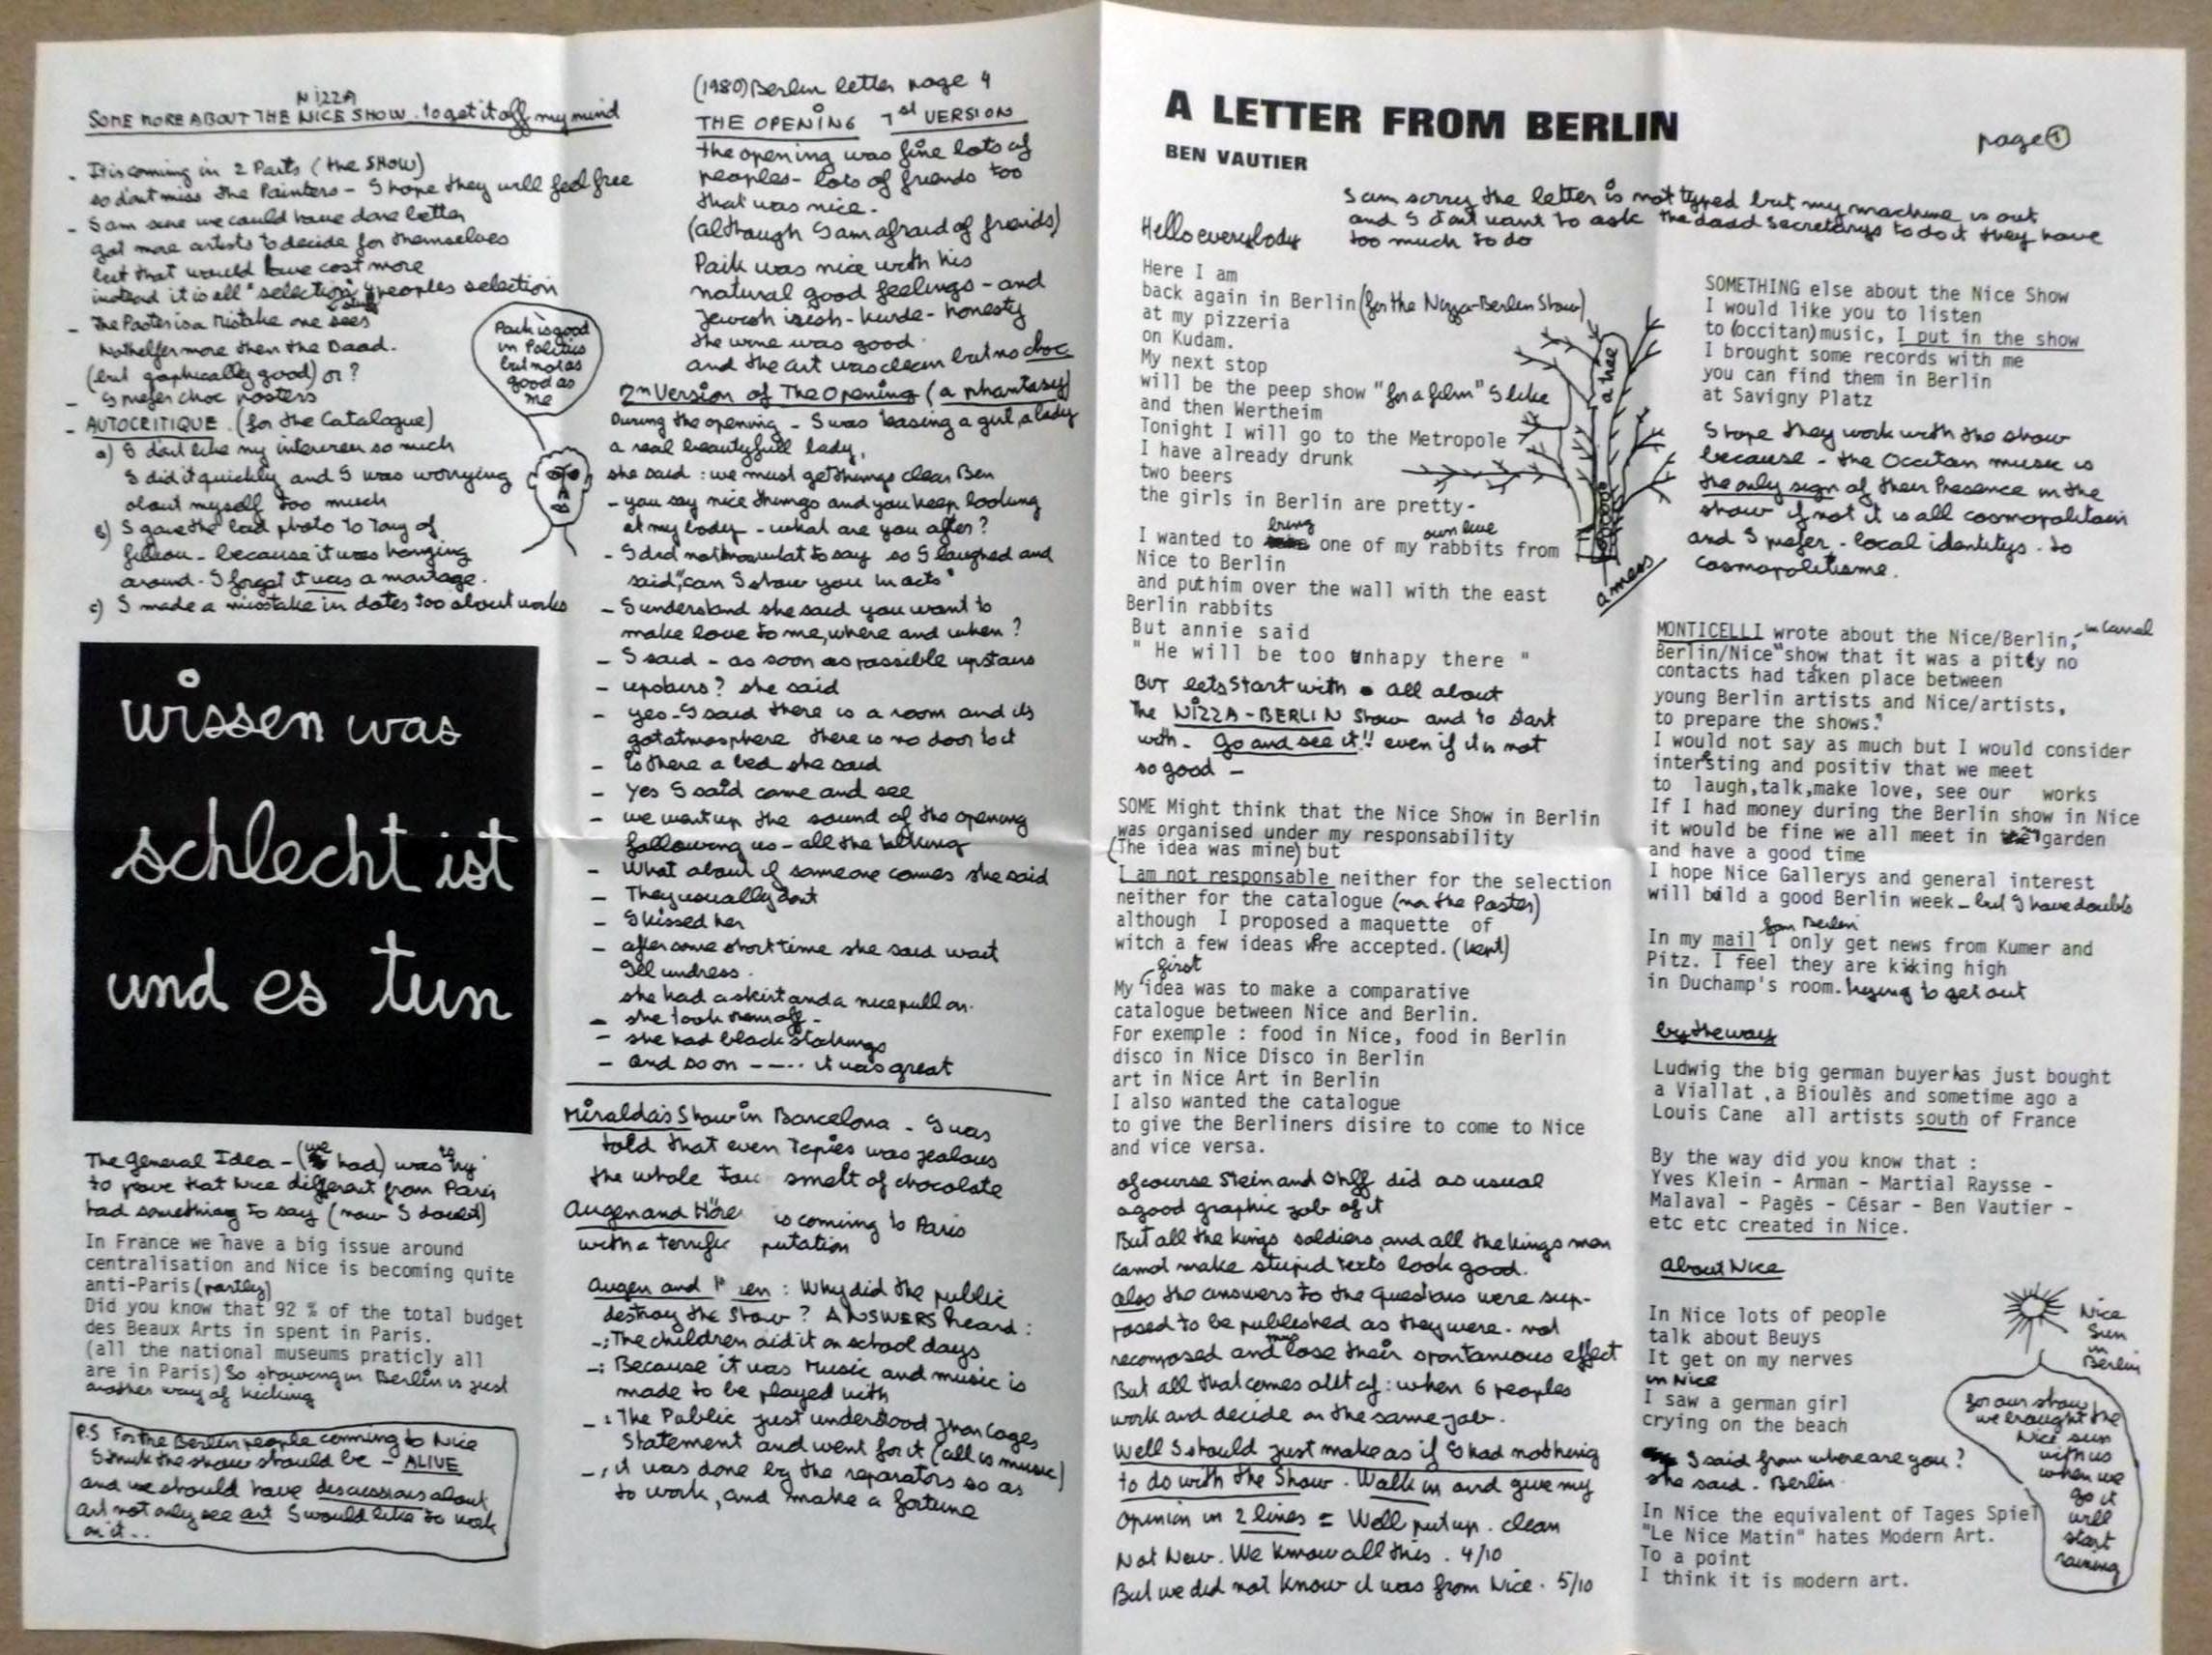 NIZZA
SOME MORE ABOUT THE NICE SHOW. to get it off my mind
- It is coming in 2 Parts (the SHOW)
so dont miss the Painters - I hope they will feel free
- I am sure we could have done better
got more artists to decide for themselves
but that would have cost more
instead it is all "selection" peoples selection
- The Poster is a mistake one sees
Nothelfer more then the Daad.
(but graphically good) or?
- I prefer choc posters
- AUTOCRITIQUE. (for the Catalogue)
a) I dont like my interview so much
I did it quickly and I was worrying
about myself too much
b) I gave the bad photo to Tony of
filliou - because it was hanging
around - I forgot it was a montage.
c) I made a misstake in dates too about works
Paik is good
in Politics
but not as
good as
me
wissen was
schlecht ist
und es tun
The General Idea - (we had) was "to try"
to prove that Nice different from Paris
had something to say (now I doubt)
In France we have a big issue around
centralisation and Nice is becoming quite
anti-Paris (partly)
Did you know that 92 % of the total budget
des Beaux Arts in spent in Paris.
(all the national museums praticly all
are in Paris) So showing in Berlin is just
another way of kicking
P.S For the Berlin people coming to Nice
I think the show should be - ALIVE
and we should have discussions about
art not only see art I would like to work
on it..
(1980) Berlin letter page 4
THE OPENING 1st VERSION
the opening was fine lots of
peoples - lots of friends too
that was nice.
(although I am afraid of freinds)
Paik was nice with his
natural good feelings - and
Jewish - kurde - honesty
the wine was good.
and the art was clean but no choc
2n Version of The Opening (a phantasy)
During the opening - I was teasing a girl, a lady
a real beautyfull lady,
she said: we must get things clear Ben
- you say nice things and you keep looking
at my body - what are you after?
- I did not know what to say so I laughed and
said, "can I show you in acts"
- I understand she said you want to
make love to me, where and when?
- I said - as soon as possible upstairs
- upstairs? she said
- yes - I said there is a room and its
got atmosphere there is no door to it
- Is there a bed she said
- Yes I said come and see
- we went up the sound of the opening
following us - all the talking
- What about if someone comes she said
- They usually dont
- I kissed her
- after some short time she said wait
Ill undress.
she had a skirt and a nice pull on.
- she took them off -
- she had black stockings
- and so on ----.. it was great
Miralda's Show in Barcelona - I was
told that even Tapies was jealous
the whole smelt of chocolate
Augen and is coming to Paris
with a terrific putation
Augen and en: Why did the public
destroy the Show? ANSWERS heard:
-: The children did it on school days
-: Because it was Music and music is
made to be played with
-: The Public just understood Jhon Cages
Statement and went for it (all is music)
-: it was done by the reparators so as
to work, and make a fortune
A LETTER FROM BERLIN
BEN VAUTIER
page 1
I am sorry the letter is not typed but my machine is out
and I dont want to ask the daad secretarys to do it they have
too much to do
Hello everybody
Here I am
back again in Berlin (for the Nizza-Berlin Show)
at my pizzeria
on Kudam.
My next stop
will be the peep show "for a film" I like
and then Wertheim
Tonight I will go to the Metropole
I have already drunk
two beers
the girls in Berlin are pretty-
I wanted to bring one of my own live rabbits from
Nice to Berlin
and put him over the wall with the east
Berlin rabbits
But annie said
" He will be too unhapy there "
BUT lets Start with all about
the NIZZA-BERLIN Show and to start
with - Go and see it!! even if it is not
so good -
SOME Might think that the Nice Show in Berlin
was organised under my responsability
(The idea was mine) but
I am not responsable neither for the selection
neither for the catalogue (nor the Poster)
although I proposed a maquette of
witch a few ideas were accepted. (kept)
My first idea was to make a comparative
catalogue between Nice and Berlin.
For exemple : food in Nice, food in Berlin
disco in Nice Disco in Berlin
art in Nice Art in Berlin
I also wanted the catalogue
to give the Berliners disire to come to Nice
and vice versa.
of course Stein and Ohff did as usual
a good graphic job of it
But all the kings soldiers, and all the kings men
cannot make stupid texts look good.
also the answers to the questions were sup-
posed to be published as they were - not
recomposed and thus lose their spontanious effect
But all that comes out of: when 6 peoples
work and decide on the same job.
Well I should just make as if I had nothing
to do with the Show. Walk in and give my
opinion in 2 lines = Well put up. clean
Not New. We know all this. 4/10
But we did not know it was from Nice. 5/10
a tree
a mess
SOMETHING else about the Nice Show
I would like you to listen
to (occitan) music, I put in the show
I brought some records with me
you can find them in Berlin
at Savigny Platz
I hope they work with the show
because - the Occitan music is
the only sign of their Presence in the
show if not it is all cosmopolitain
and I prefer - local identitys - to
Cosmopolitisme.
MONTICELLI wrote about the Nice/Berlin, in Canal
Berlin/Nice "show that it was a pitty no
contacts had taken place between
young Berlin artists and Nice/artists,
to prepare the shows."
I would not say as much but I would consider
intersting and positiv that we meet
to laugh,talk,make love, see our works
If I had money during the Berlin show in Nice
it would be fine we all meet in my garden
and have a good time
I hope Nice Gallerys and general interest
will build a good Berlin week - but I have doubts
In my mail from Berlin I only get news from Kumer and
Pitz. I feel they are kiking high
in Duchamp's room. trying to get out
by the way
Ludwig the big german buyer has just bought
a Viallat ,a Bioulès and sometime ago a
Louis Cane all artists south of France
By the way did you know that :
Yves Klein - Arman - Martial Raysse -
Malaval - Pagès - César - Ben Vautier -
etc etc created in Nice.
about Nice
In Nice lots of people
talk about Beuys
It get on my nerves
in Nice
I saw a german girl
crying on the beach
I said from where are you?
she said. Berlin.
In Nice the equivalent of Tages Spiel
"Le Nice Matin" hates Modern Art.
To a point
I think it is modern art.
Nice
Sun
in
Berlin
for our show
we brought the
Nice sun
with us
when we
go it
will
start
raining